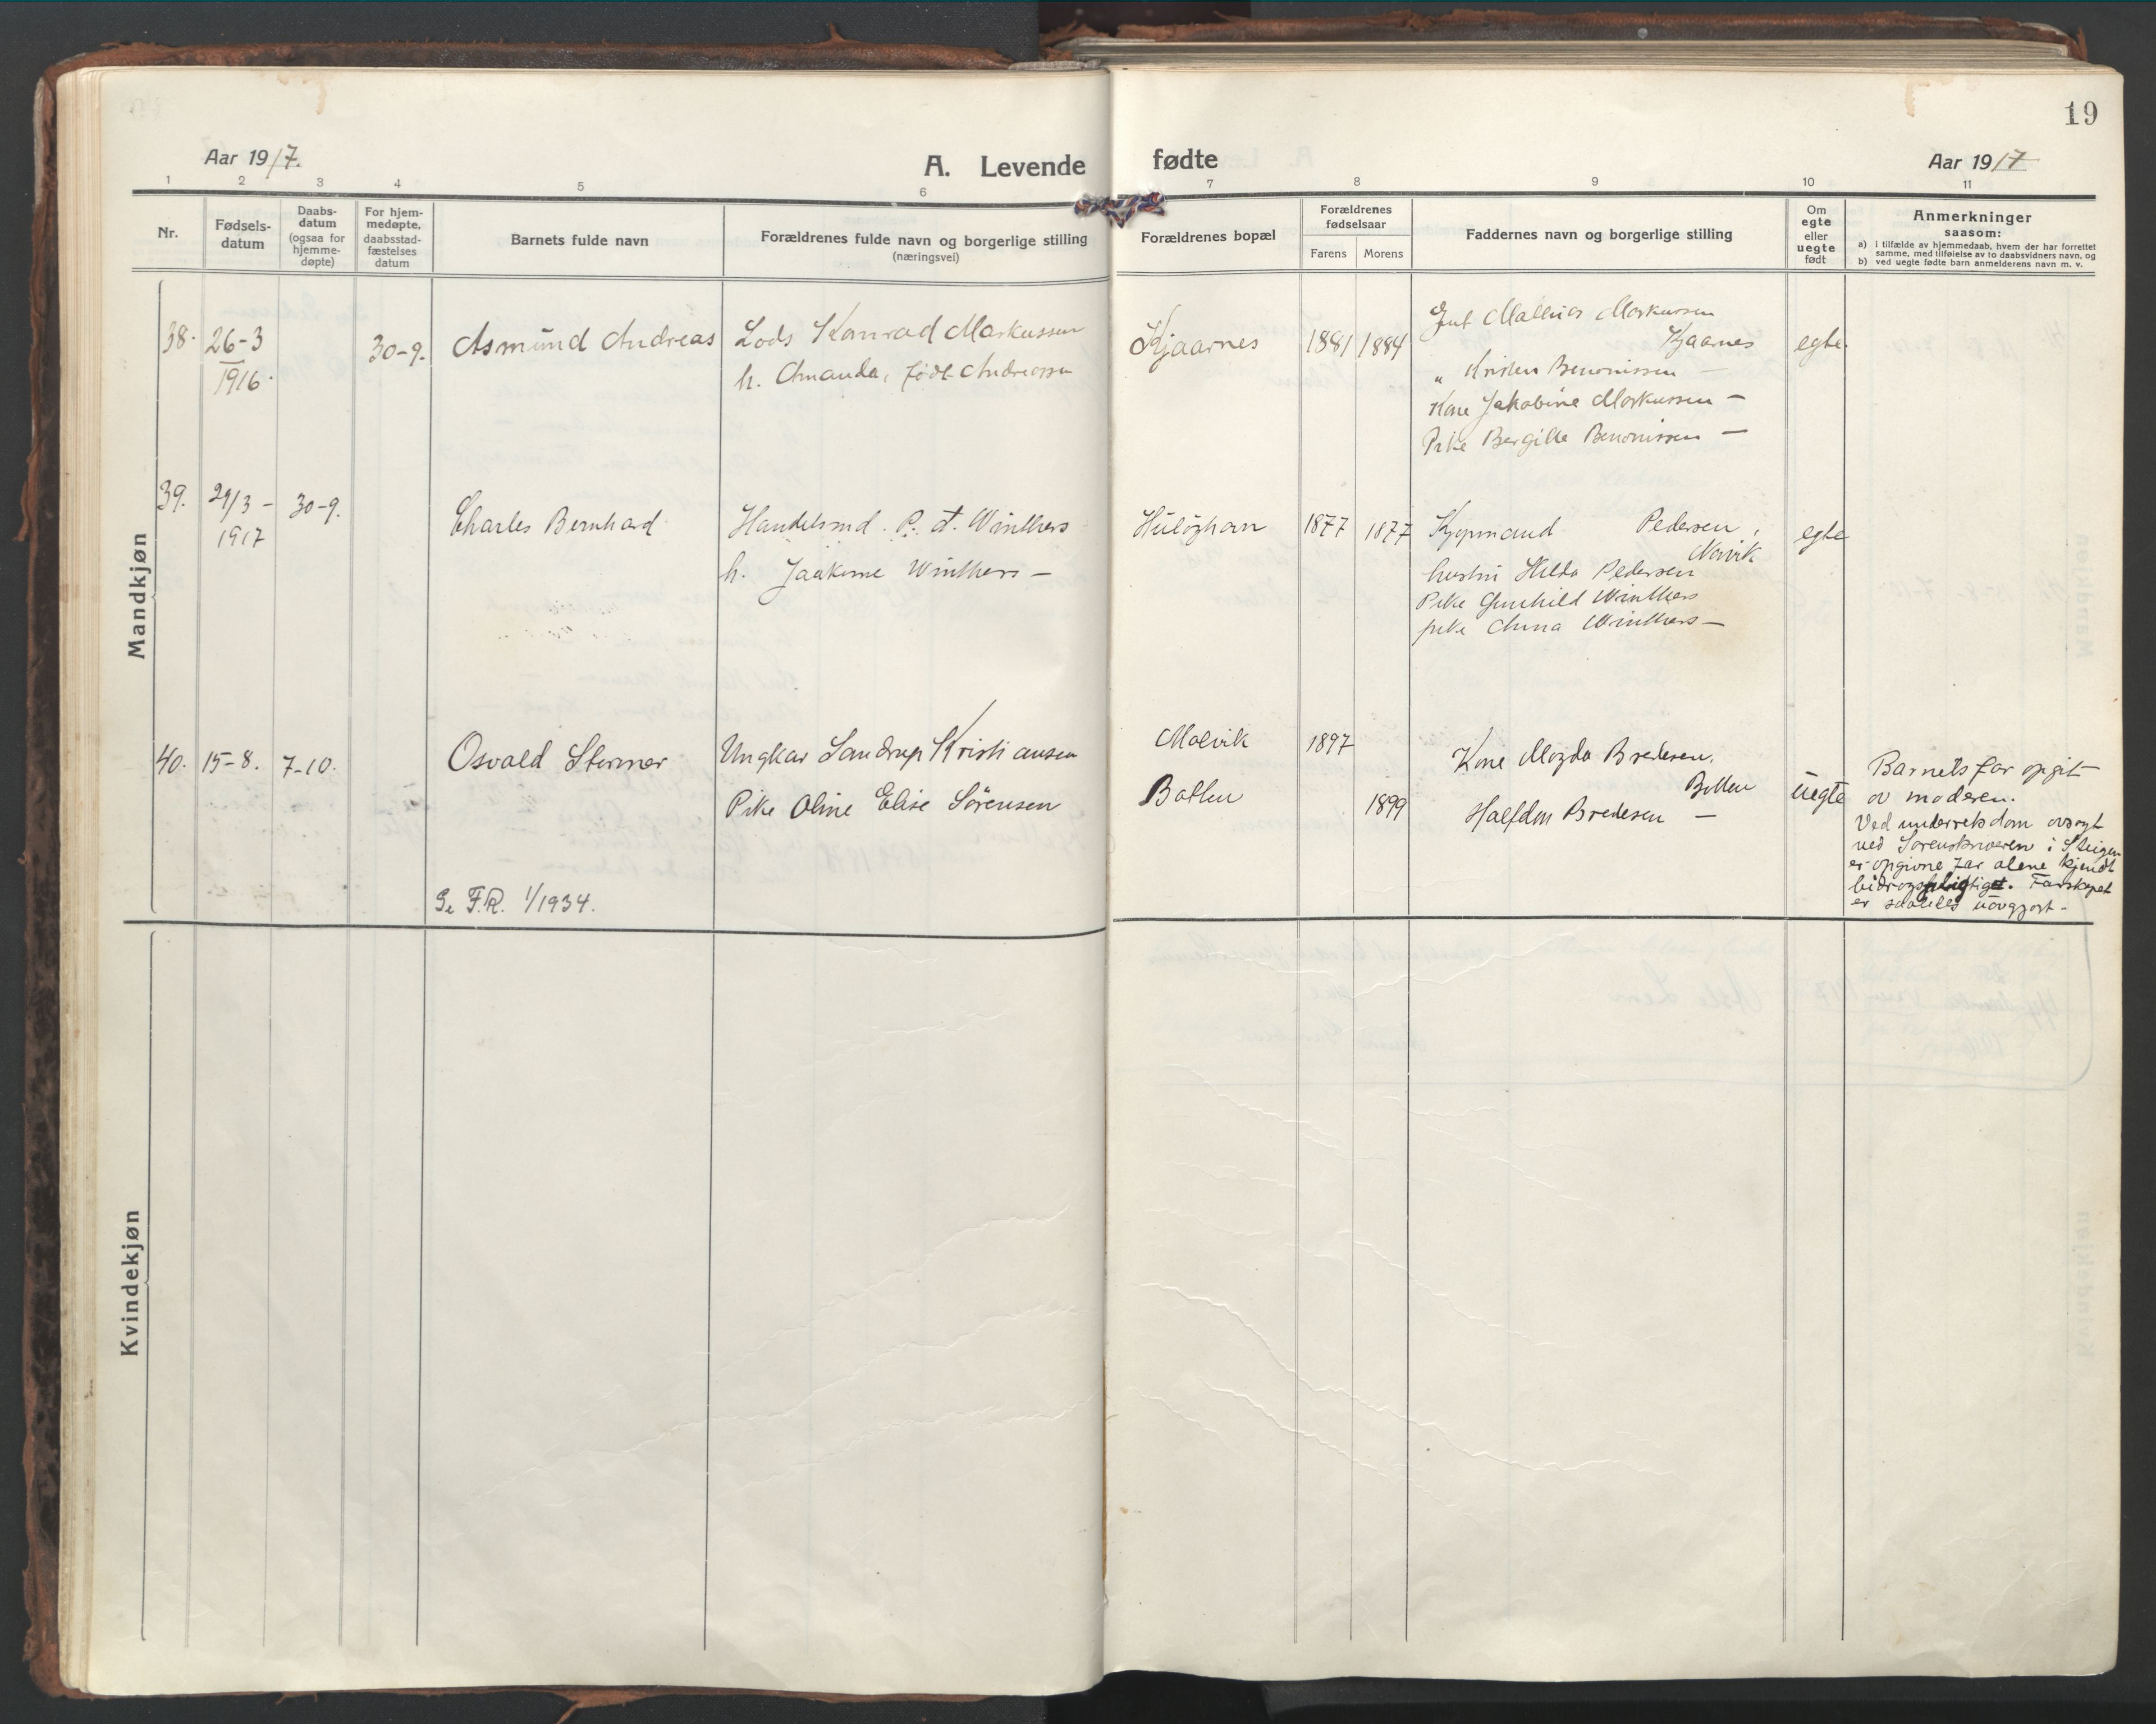 19
Aar 1917.
A. Levende
fødte
Aar 1917
1 2 3 4 5 6 7 8 9 10 11
Nr.
Fødsels-
datum
Daabs-
datum
(ogsaa for
hjemme-
døpte)
For hjem-
medøpte,
daabsstad-
fæstelses
datum
Barnets fulde navn
Forældrenes fulde navn og borgerlige stilling
(næringsvei)
Forældrenes bopæl
Forældrenes
fødselsaar
Farens
Morens
Faddernes navn og borgerlige stilling
Om
egte
eller
uegte
født
Anmerkninger
saasom:
a) i tilfælde av hjemmedaab, hvem der har forrettet
samme, med tilføielse av to daabsvidners navn, og
b) ved uegte fødte barn anmelderens navn m. v.
Mandkjøn
38.
26-3
1916.
30-9.
Asmund Andreas
Lods Konrad Markussen
h. Amanda, født Andreassen
Kjaarnes
1881
1884
Mathias Markussen
Kjaarnes
" Kristen Benonissen —
Kone Jakobine Markussen —
Pike Bergitte Benonissen —
egte.
39.
29/3 -
1917
30-9.
Charles Bernhard
Handelsmd. P. A. Winthers
h. Jaakime Winthers —
1877
1877
Kjøpmand Pedersen,
hustru Hilda Pedersen
Pike Gunhild Winthers
pike Anna Winthers —
egte
40.
15-8.
7-10.
Osvald Stermer
Ungkar Sandrup Kristiansen
Pike Oline Elise Sørensen
Se F.R. 1/1934.
Malvik
Botten
1897
1899
Kone Magda Bredesen,
Botten
Halfdan Bredesen —
uegte
Barnets far opgit
av moderen.
Ved underretsdom avsagt
ved Sorenskriveren i Steigen
er opgivne far alene kjendt
bidragspligtiget. Farskapet
er saaledes uavgjort -
Kvindekjøn